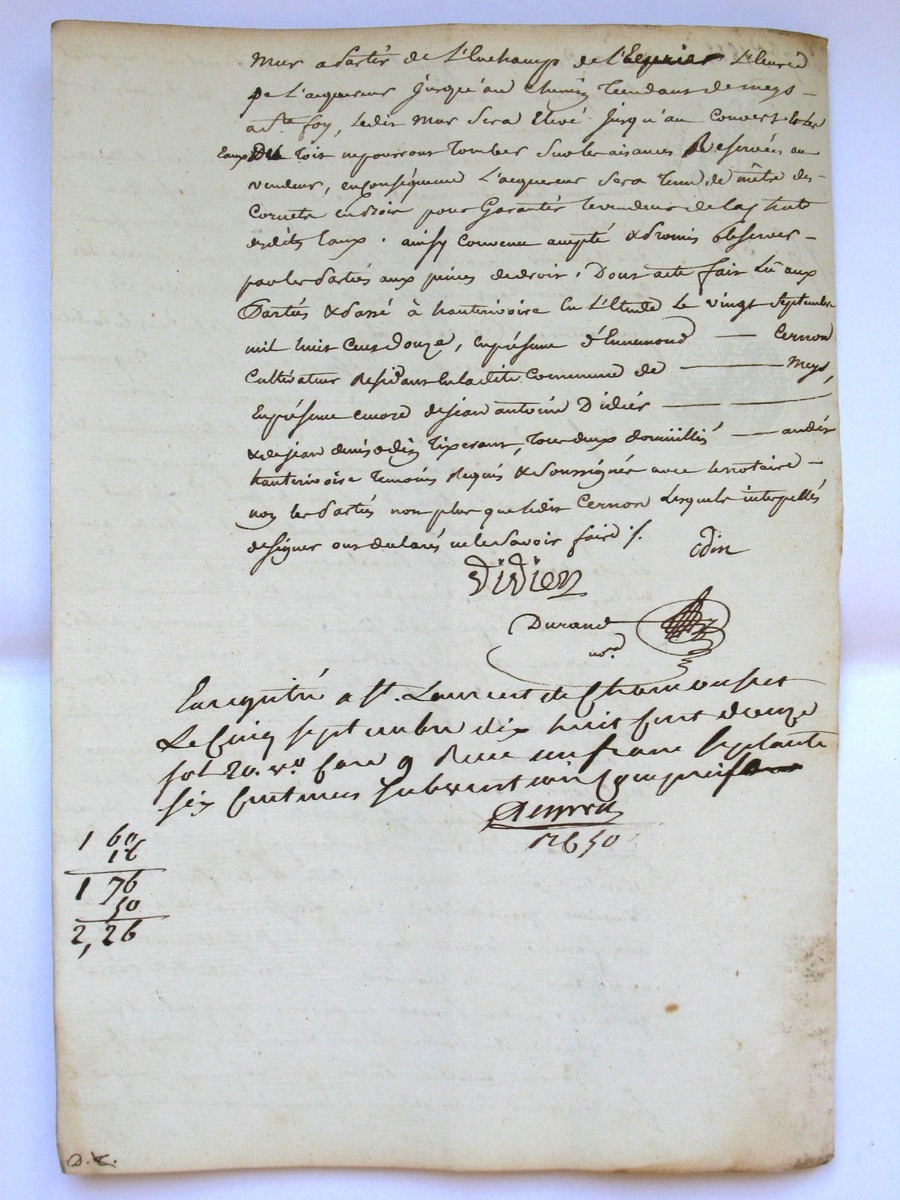 mur a partir de l'Enchamp de l'
de l'acquereur jusqu'au chemin tendant de meys
a Ste foy, ledit mur sera elevé jusqu'au couvert et les
Eaux du toit ne pourront tomber sur les aisances Reservées au
vendeur, en conséquence l'acquereur sera tenu de mêtre des
Cornets en droit pour Garantir le vendeur de la chute
desdits Eaux. ainsy convenu accepté & promis observer
par les parties aux peines de droit, Dont acte fait Lû aux
Parties & Passé à hauterivoire En L'Etude Le vingt Septembre
mil huit Cent Douze, En présence d'Ennemond Cernon
Cultivateur Residant en la dite Commune de Meys,
En présence encore de jean antoine Didier
& de jean denis odin tixerant, tous deux domiciliés audit
hauterivoire temoins Requis & Soussignés avec le notaire
non les Parties non plus que ledit Cernon Lesquels interpellés
de signer ont declaré ne le Savoir faire ./.
odin
Didier
Durand
nore
Enregistré a St. Laurent de Chamousset
Le Cinq septembre dix huit cent douze
fol 20. vo Case 9 Recu un franc Septante
six Centimes subvention Comprise
R 6 50
1 60
16
1 76
50
2,26
D.